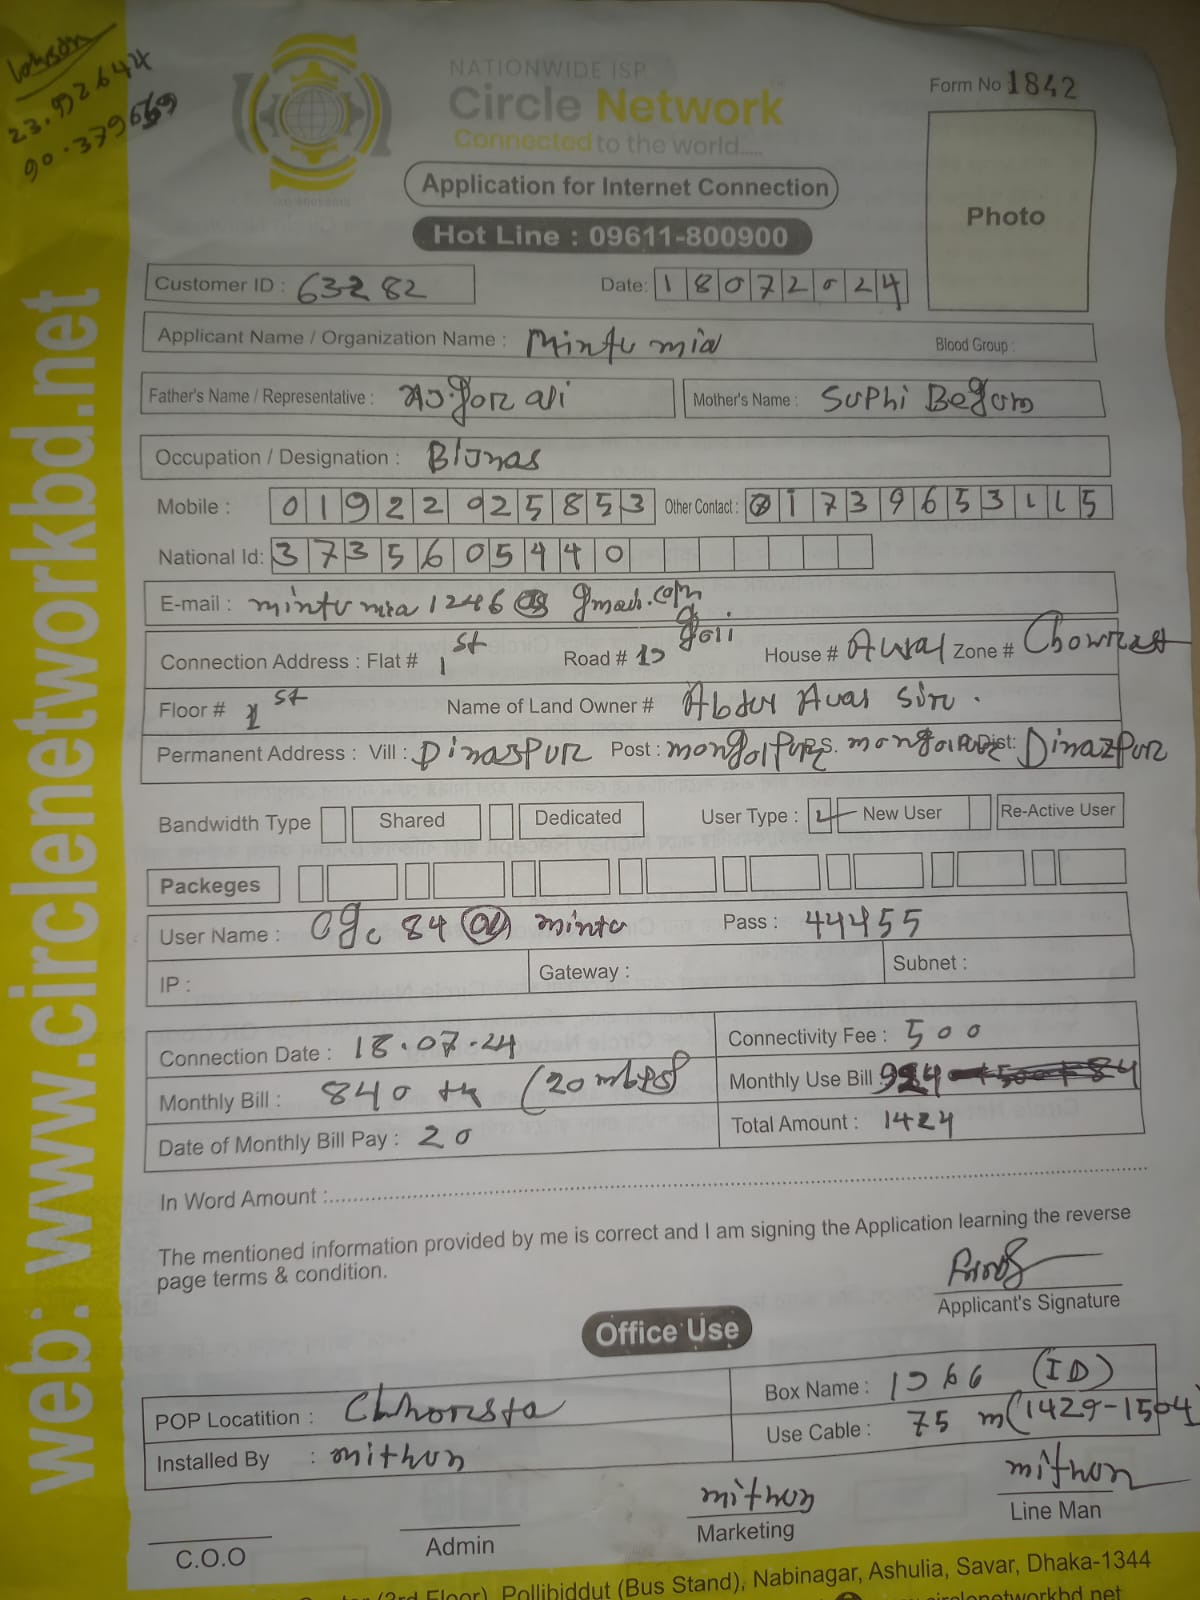 23.992644
90.379669
NATIONWIDE ISP
Circle Network
Connected to the world.....
Form No 1842
Application for Internet Connection
Photo
Hot Line : 09611-800900
Customer ID : 63282
Date: 18072024
Applicant Name / Organization Name : Mintu mia
Blood Group :
Father's Name / Representative : ali
Mother's Name : Suphi Begom
Occupation / Designation : BIJnas
Mobile : 01922925853 Other Contact : 01739653115
National Id: 3735605440
E-mail : mintu mia 1246 @ gmail.com
Connection Address : Flat # 1st Road # goli House # Zone #
Floor # 1st Name of Land Owner # Abdur Aual Sir.
Permanent Address : Vill : Dinaspur Post : mongolpur P.S. mongolpur Dist: Dinazpur
Bandwidth Type Shared Dedicated User Type : New User Re-Active User
Packeges
User Name : 84 @ mintu Pass : 44455
IP : Gateway : Subnet :
Connection Date : 18.07.24 Connectivity Fee : 500
Monthly Bill : 840 tk (20 mbps) Monthly Use Bill : 924
Date of Monthly Bill Pay : 20 Total Amount : 1424
In Word Amount :
The mentioned information provided by me is correct and I am signing the Application learning the reverse
page terms & condition.
Applicant's Signature
Office Use
POP Locatition : Box Name : 1366 (ID)
Installed By : mithun Use Cable : 75 m (1429-1504)
mithun mithun
C.O.O Admin Marketing Line Man
(3rd Floor), Pollibiddut (Bus Stand), Nabinagar, Ashulia, Savar, Dhaka-1344
circlenetworkbd.net
web: www.circlenetworkbd.net